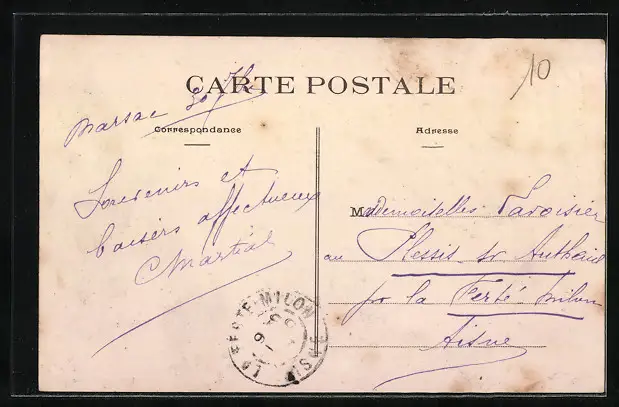 10
CARTE POSTALE
Marsac
Correspondance
Adresse
Souvenirs et
baisers affectueux
Martial
Mademoiselles Lavoisier
au Plessis sr Autheuil
pr la Ferté-milon
Aisne
LA FERTE-MILON
AISNE